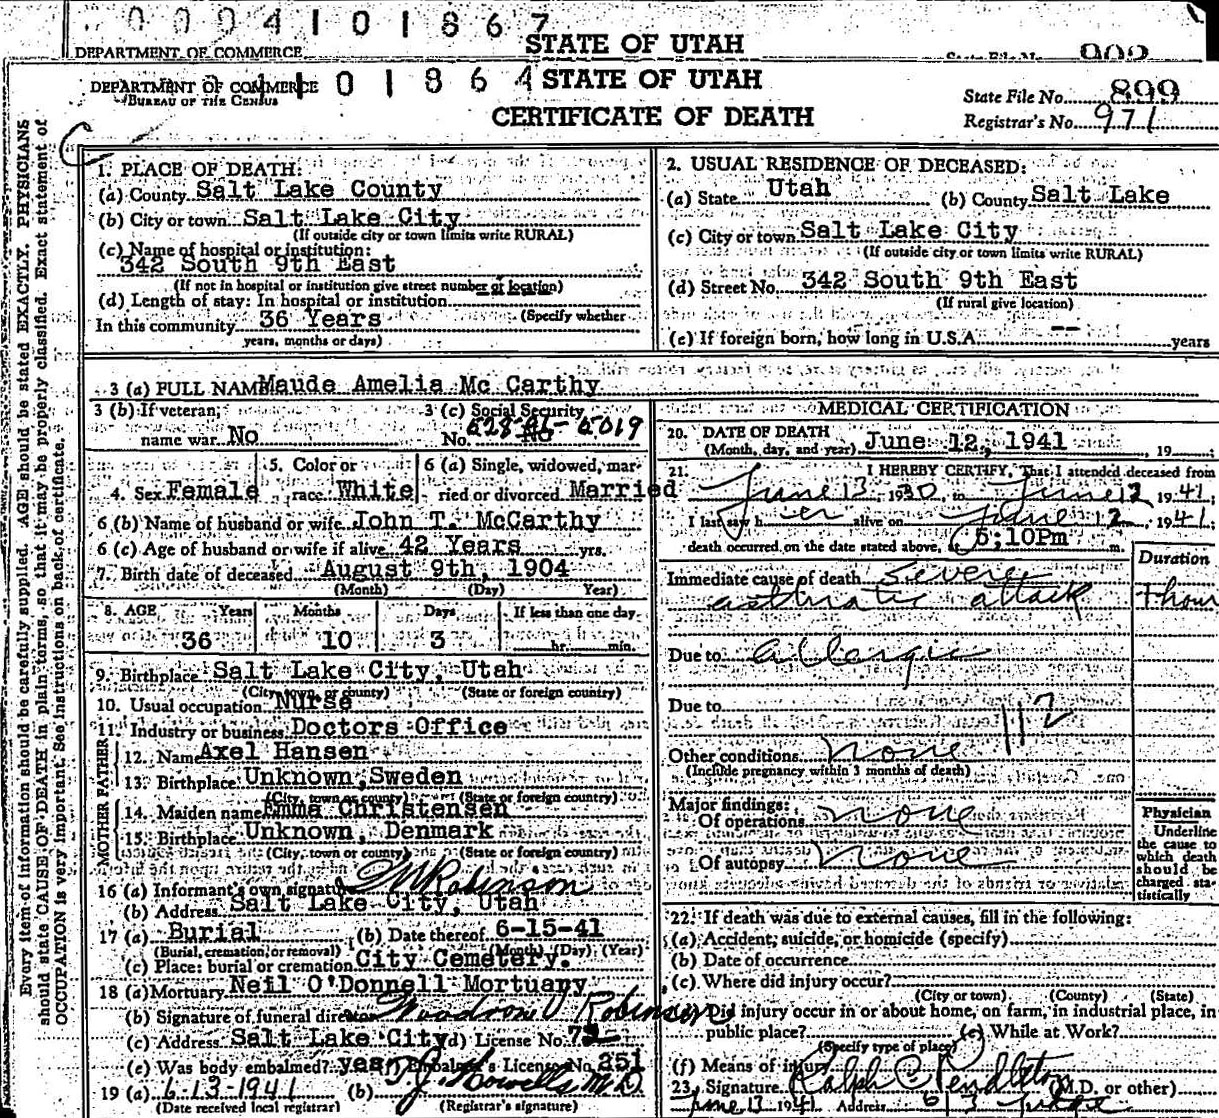 0004101867
DEPARTMENT OF COMMERCE
STATE OF UTAH
State File No. 902
DEPARTMENT OF COMMERCE
BUREAU OF THE CENSUS
101864
STATE OF UTAH
CERTIFICATE OF DEATH
State File No. 899
Registrar's No. 971
Every item of information should be carefully supplied. AGE should be stated EXACTLY. PHYSICIANS
should state CAUSE OF DEATH in plain terms, so that it may be properly classified. Exact statement of
OCCUPATION is very important. See instructions on back of certificate.
1. PLACE OF DEATH:
(a) County Salt Lake County
(b) City or town Salt Lake City
(If outside city or town limits write RURAL)
(c) Name of hospital or institution:
342 South 9th East
(If not in hospital or institution give street number or location)
(d) Length of stay: In hospital or institution
(Specify whether
In this community 36 Years
years, months or days)
2. USUAL RESIDENCE OF DECEASED:
(a) State Utah (b) County Salt Lake
(c) City or town Salt Lake City
(If outside city or town limits write RURAL)
(d) Street No. 342 South 9th East
(If rural give location)
(e) If foreign born, how long in U.S.A. -- years
3 (a) FULL NAME Maude Amelia Mc Carthy
3 (b) If veteran,
name war No
3 (c) Social Security
No. No 5019
4. Sex Female
5. Color or
race White
6 (a) Single, widowed, mar-
ried or divorced Married
6 (b) Name of husband or wife John T. McCarthy
6 (c) Age of husband or wife if alive 42 Years yrs.
7. Birth date of deceased August 9th, 1904
(Month) (Day) Year)
8. AGE Years Months Days If less than one day
36 10 3 hr. min.
9. Birthplace Salt Lake City, Utah
(City, town, or county) (State or foreign country)
10. Usual occupation Nurse
11. Industry or business Doctors Office
FATHER
12. Name Axel Hansen
13. Birthplace Unknown, Sweden
(City, town or county) (State or foreign country)
MOTHER
14. Maiden name Emma Christensen
15. Birthplace Unknown, Denmark
(City, town or county) (State or foreign country)
16 (a) Informant's own signature M Robinson
(b) Address Salt Lake City, Utah
17 (a) Burial (b) Date thereof 6-15-41
(Burial, cremation, or removal) (Month) (Day) (Year)
(c) Place: burial or cremation City Cemetery.
18 (a) Mortuary Neil O'Donnell Mortuary
(b) Signature of funeral director Woodrow D Robinson
(c) Address Salt Lake City (d) License No.
(e) Was body embalmed? yes (f) Embalmer's License No. 251
19 (a) 6-13-1941 (b) T.J. Howells M.D.
(Date received local registrar) (Registrar's signature)
MEDICAL CERTIFICATION
20. DATE OF DEATH
(Month, day, and year) June 12, 1941 , 19 ;
21. I HEREBY CERTIFY, That I attended deceased from
June 13, 1930, to June 12 1941;
I last saw h er alive on June 12, 1941;
death occurred on the date stated above, at 5:10Pm m.
Duration
Immediate cause of death Severe
asthmatic attack 1 hour
Due to allergic
Due to
112
Other conditions none
(Include pregnancy within 3 months of death)
Major findings:
Of operations none
Of autopsy none
Physician
Underline
the cause to
which death
should be
charged sta-
tistically
22. If death was due to external causes, fill in the following:
(a) Accident, suicide, or homicide (specify)
(b) Date of occurrence
(c) Where did injury occur?
(City or town) (County) (State)
Did injury occur in or about home, on farm, in industrial place, in
public place? (e) While at Work?
(Specify type of place)
(f) Means of injury
23. Signature Ralph C. Pendleton (M.D. or other)
June 13 1941 Address